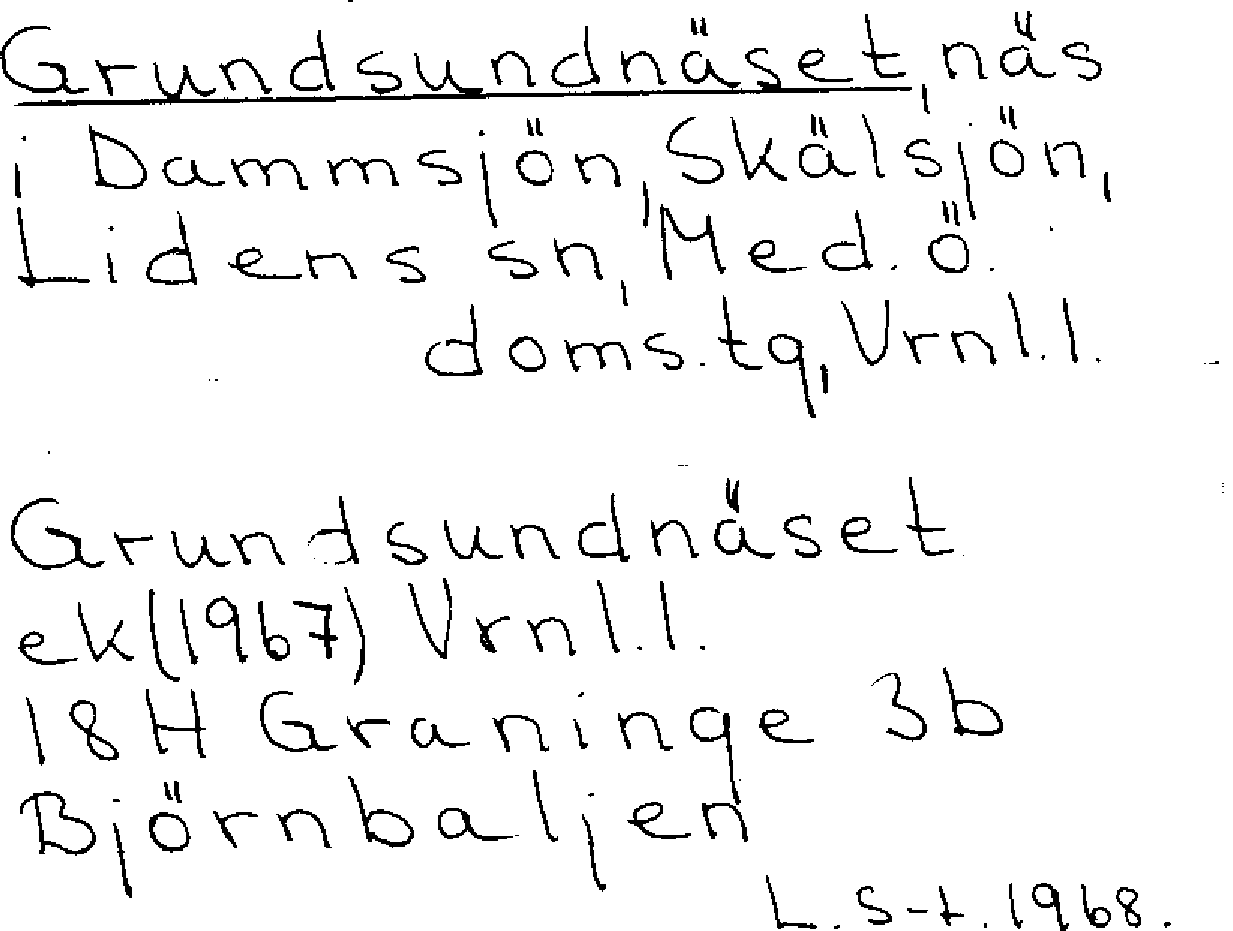 Grundsundnäset, näs
i Dammsjön, Skälsjön,
Lidens sn, Med. ö.
doms.tg, Vrnl.l.
Grundsundnäset
ek (1967) Vrnl.l.
18H Graninge 3b
Björnbaljen
L. S-t. 1968.